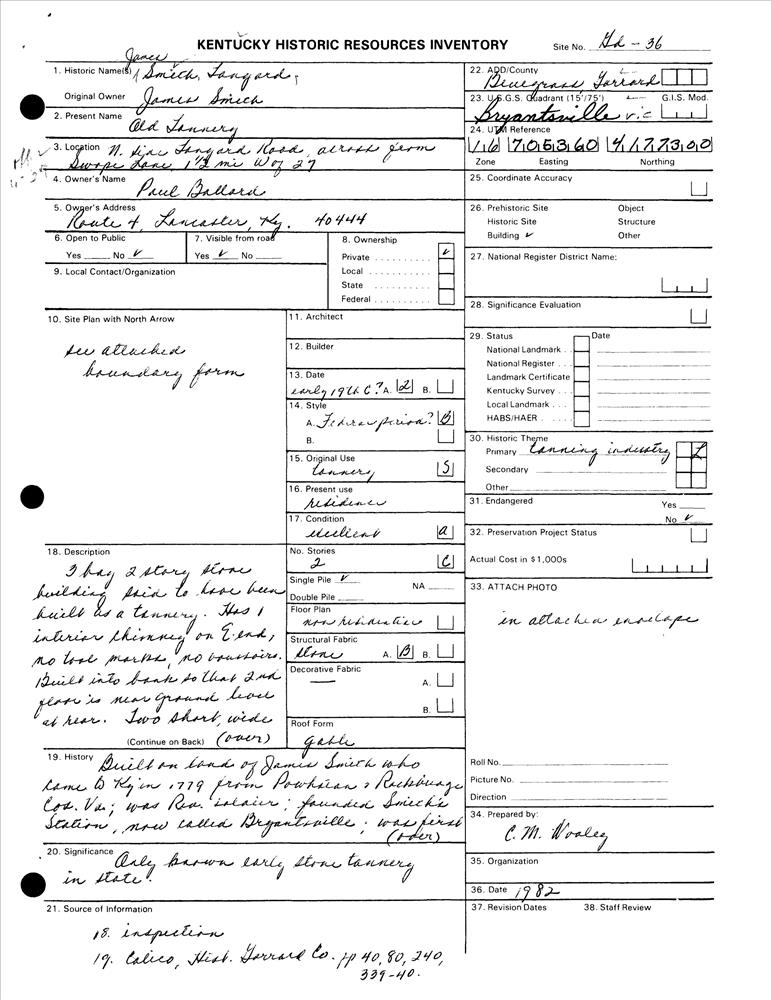 KENTUCKY HISTORIC RESOURCES INVENTORY
Site No. Gd - 36
1. Historic Name(s) James Smith, Tanyard,
Original Owner James Smith
2. Present Name
Old Tannery
3. Location N. side Tanyard Road, across from
Swope Lane, 1½ mi W of 27
4. Owner's Name
Paul Ballard
5. Owner's Address
Route 4, Lancaster, Ky. 40444
6. Open to Public
Yes No ✓
7. Visible from road
Yes ✓ No
8. Ownership
Private ✓
Local
State
Federal
9. Local Contact/Organization
10. Site Plan with North Arrow
see attached
boundary form
11. Architect
12. Builder
13. Date
early 19th C? A. 2 B.
14. Style
A. Federal period? B
B.
15. Original Use
tannery S
16. Present use
residence
17. Condition
excellent A
18. Description
3 bay 2 story stone
building said to have been
built as a tannery. Has 1
interior chimney on E end,
no tool marks, no voussoirs.
Built into bank so that 2nd
floor is near ground level
at rear. Two short, wide
(Continue on Back) (over)
No. Stories
2 C
Single Pile ✓ NA
Double Pile
Floor Plan
non residential
Structural Fabric
stone A. B B.
Decorative Fabric
— A.
B.
Roof Form
gable
19. History Built on land of James Smith who
came to Ky in 1779 from Powhatan & Rockbridge
Cos. Va; was Rev. soldier; founded Smith's
Station, now called Bryantsville; was first
(over)
20. Significance Only known early stone tannery
in state.
21. Source of Information
18. inspection
19. Calico, Hist. Garrard Co. pp 40, 80, 240,
339-40.
22. ADD/County
Bluegrass, Garrard
23. U.S.G.S. Quadrant (15'/75') G.I.S. Mod.
Bryantsville vic
24. UTM Reference
16 705360 4177300
Zone Easting Northing
25. Coordinate Accuracy
26. Prehistoric Site Object
Historic Site Structure
Building ✓ Other
27. National Register District Name:
28. Significance Evaluation
29. Status Date
National Landmark
National Register
Landmark Certificate
Kentucky Survey
Local Landmark
HABS/HAER
30. Historic Theme
Primary tanning industry L
Secondary
Other
31. Endangered Yes
No ✓
32. Preservation Project Status
Actual Cost in $1,000s
33. ATTACH PHOTO
in attached envelope
Roll No.
Picture No.
Direction
34. Prepared by:
C. M. Wooley
35. Organization
36. Date 1982
37. Revision Dates 38. Staff Review